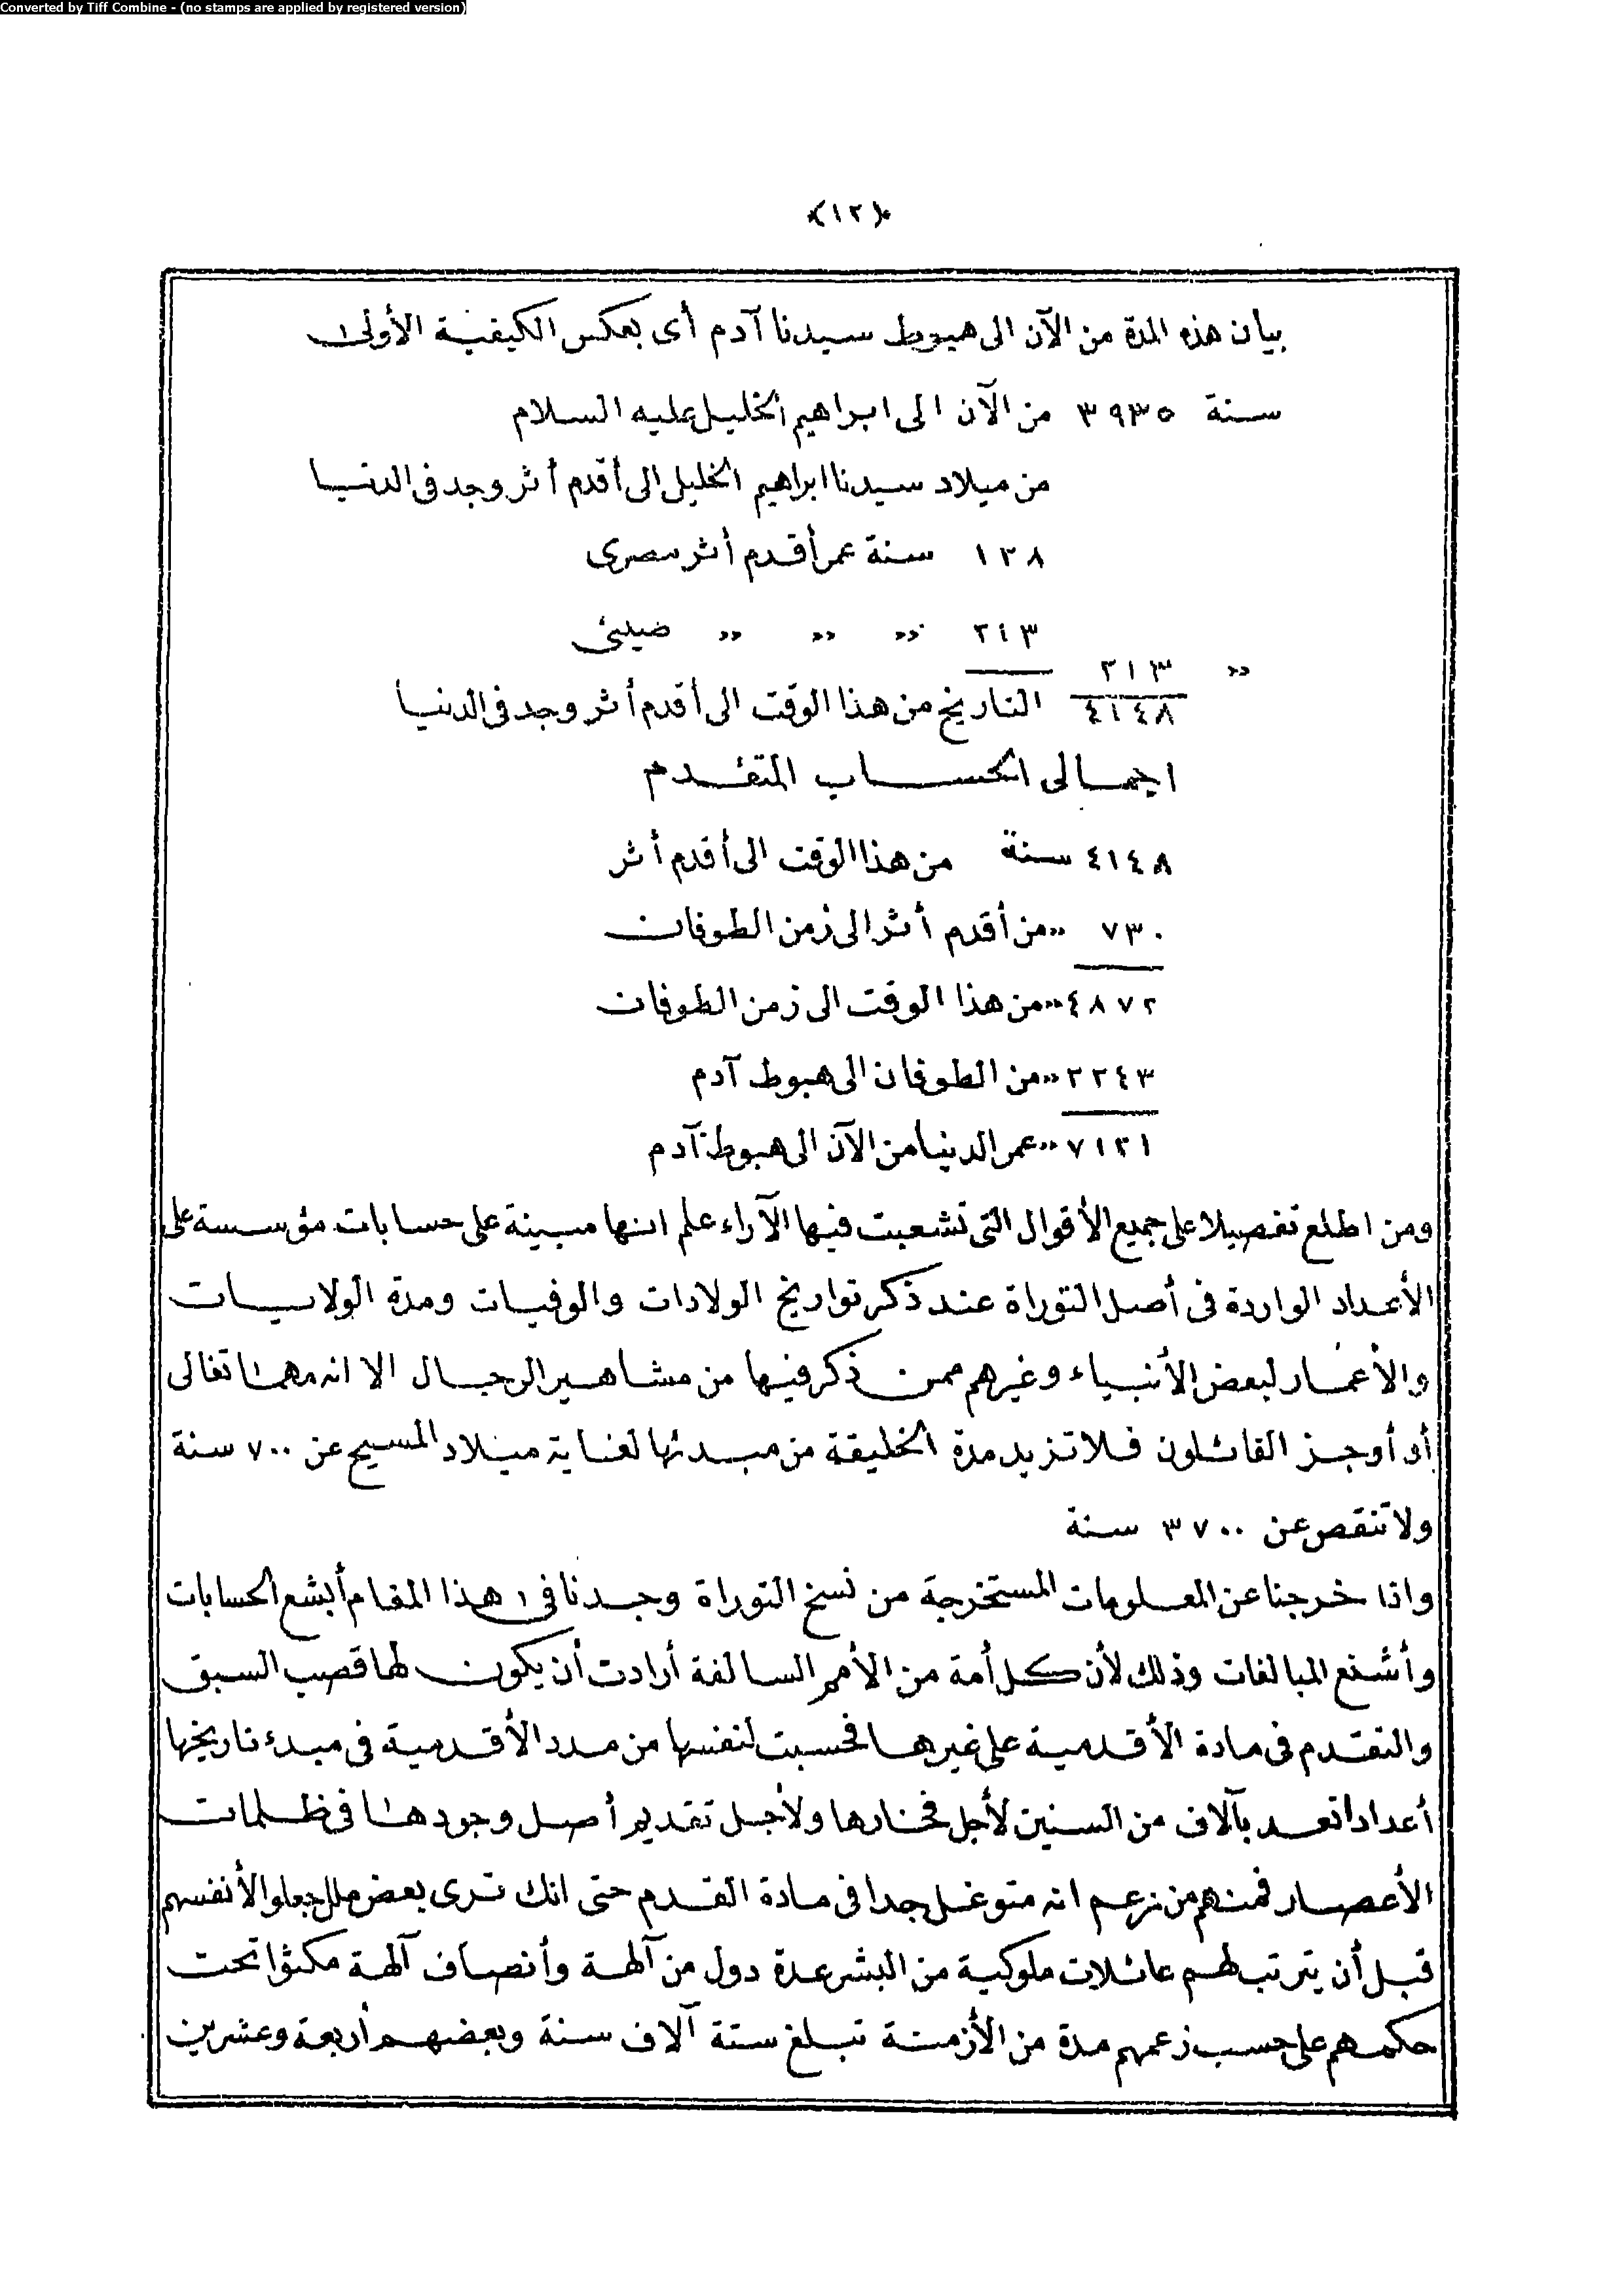 Converted by Tiff Combine - (no stamps are applied by registered version)
﴿١٢﴾
بيان هذه المدة من الآن الى هبوط سيدنا آدم أى بعكس الكيفية الأولى
سنة ٣٩٣٥ من الآن الى ابراهيم الخليل عليه السلام
من ميلاد سيدنا ابراهيم الخليل الى أقدم أثر وجد فى الدنيا
١٢٨ سنة عمر أقدم أثر مصرى
٢١٣ » » » » ضينئ
» ٢١٣
٤١٤٨ التاريخ من هذا الوقت الى أقدم أثر وجد فى الدنيا
اجمالى الحساب المتقدم
٤١٤٨ سنة من هذا الوقت الى أقدم أثر
٧٣٠ » من أقدم أثر الى زمن الطوفان
٤٨٧٢ » من هذا الوقت الى زمن الطوفان
٢٢٤٣ » من الطوفان الى هبوط آدم
٧١٢١ » عمر الدنيا من الآن الى هبوط آدم
ومن اطلع تفصيلا على جميع الأقوال التى تشعبت فيها الآراء علم انها مبينة على حسابات مؤسسة على
الأعداد الواردة فى أصل التوراة عند ذكر تواريخ الولادات والوفيات ومدة الولايات
والأعمار لبعض الأنبياء وغيرهم ممن ذكر فيها من مشاهير الرجال الا انه مهما تغالى
أو أوجز القائلون فلا تزيد مدة الخليقة من مبدئها لغاية ميلاد المسيح عن ٧٠٠ سنة
ولا تنقص عن ٣٧٠٠ سنة
واذا خرجنا عن المعلومات المستخرجة من نسخ التوراة وجدنا فى هذا المقام أبشع الحسابات
وأشنع المبالغات وذلك لأن كل أمة من الأمم السالفة أرادت أن يكون لها قصب السبق
والتقدم فى مادة الأقدمية على غيرها فحسبت لنفسها من مدد الأقدمية فى مبدء تاريخها
أعدادا تعد بآلاف من السنين لأجل فخارها ولأجل تقديم أصل وجودها فى ظلمات
الأعصار فمنهم من زعم انه متوغل جدا فى مادة القدم حتى انك ترى بعض ملل جعلوا لأنفسهم
قبل أن يترتب لهم عائلات ملوكية من البشر عدة دول من آلهة وأنصاف آلهة مكثوا تحت
حكمهم على حسب زعمهم مدة من الأزمنة تبلغ ستة آلاف سنة وبعضهم أربعة وعشرين